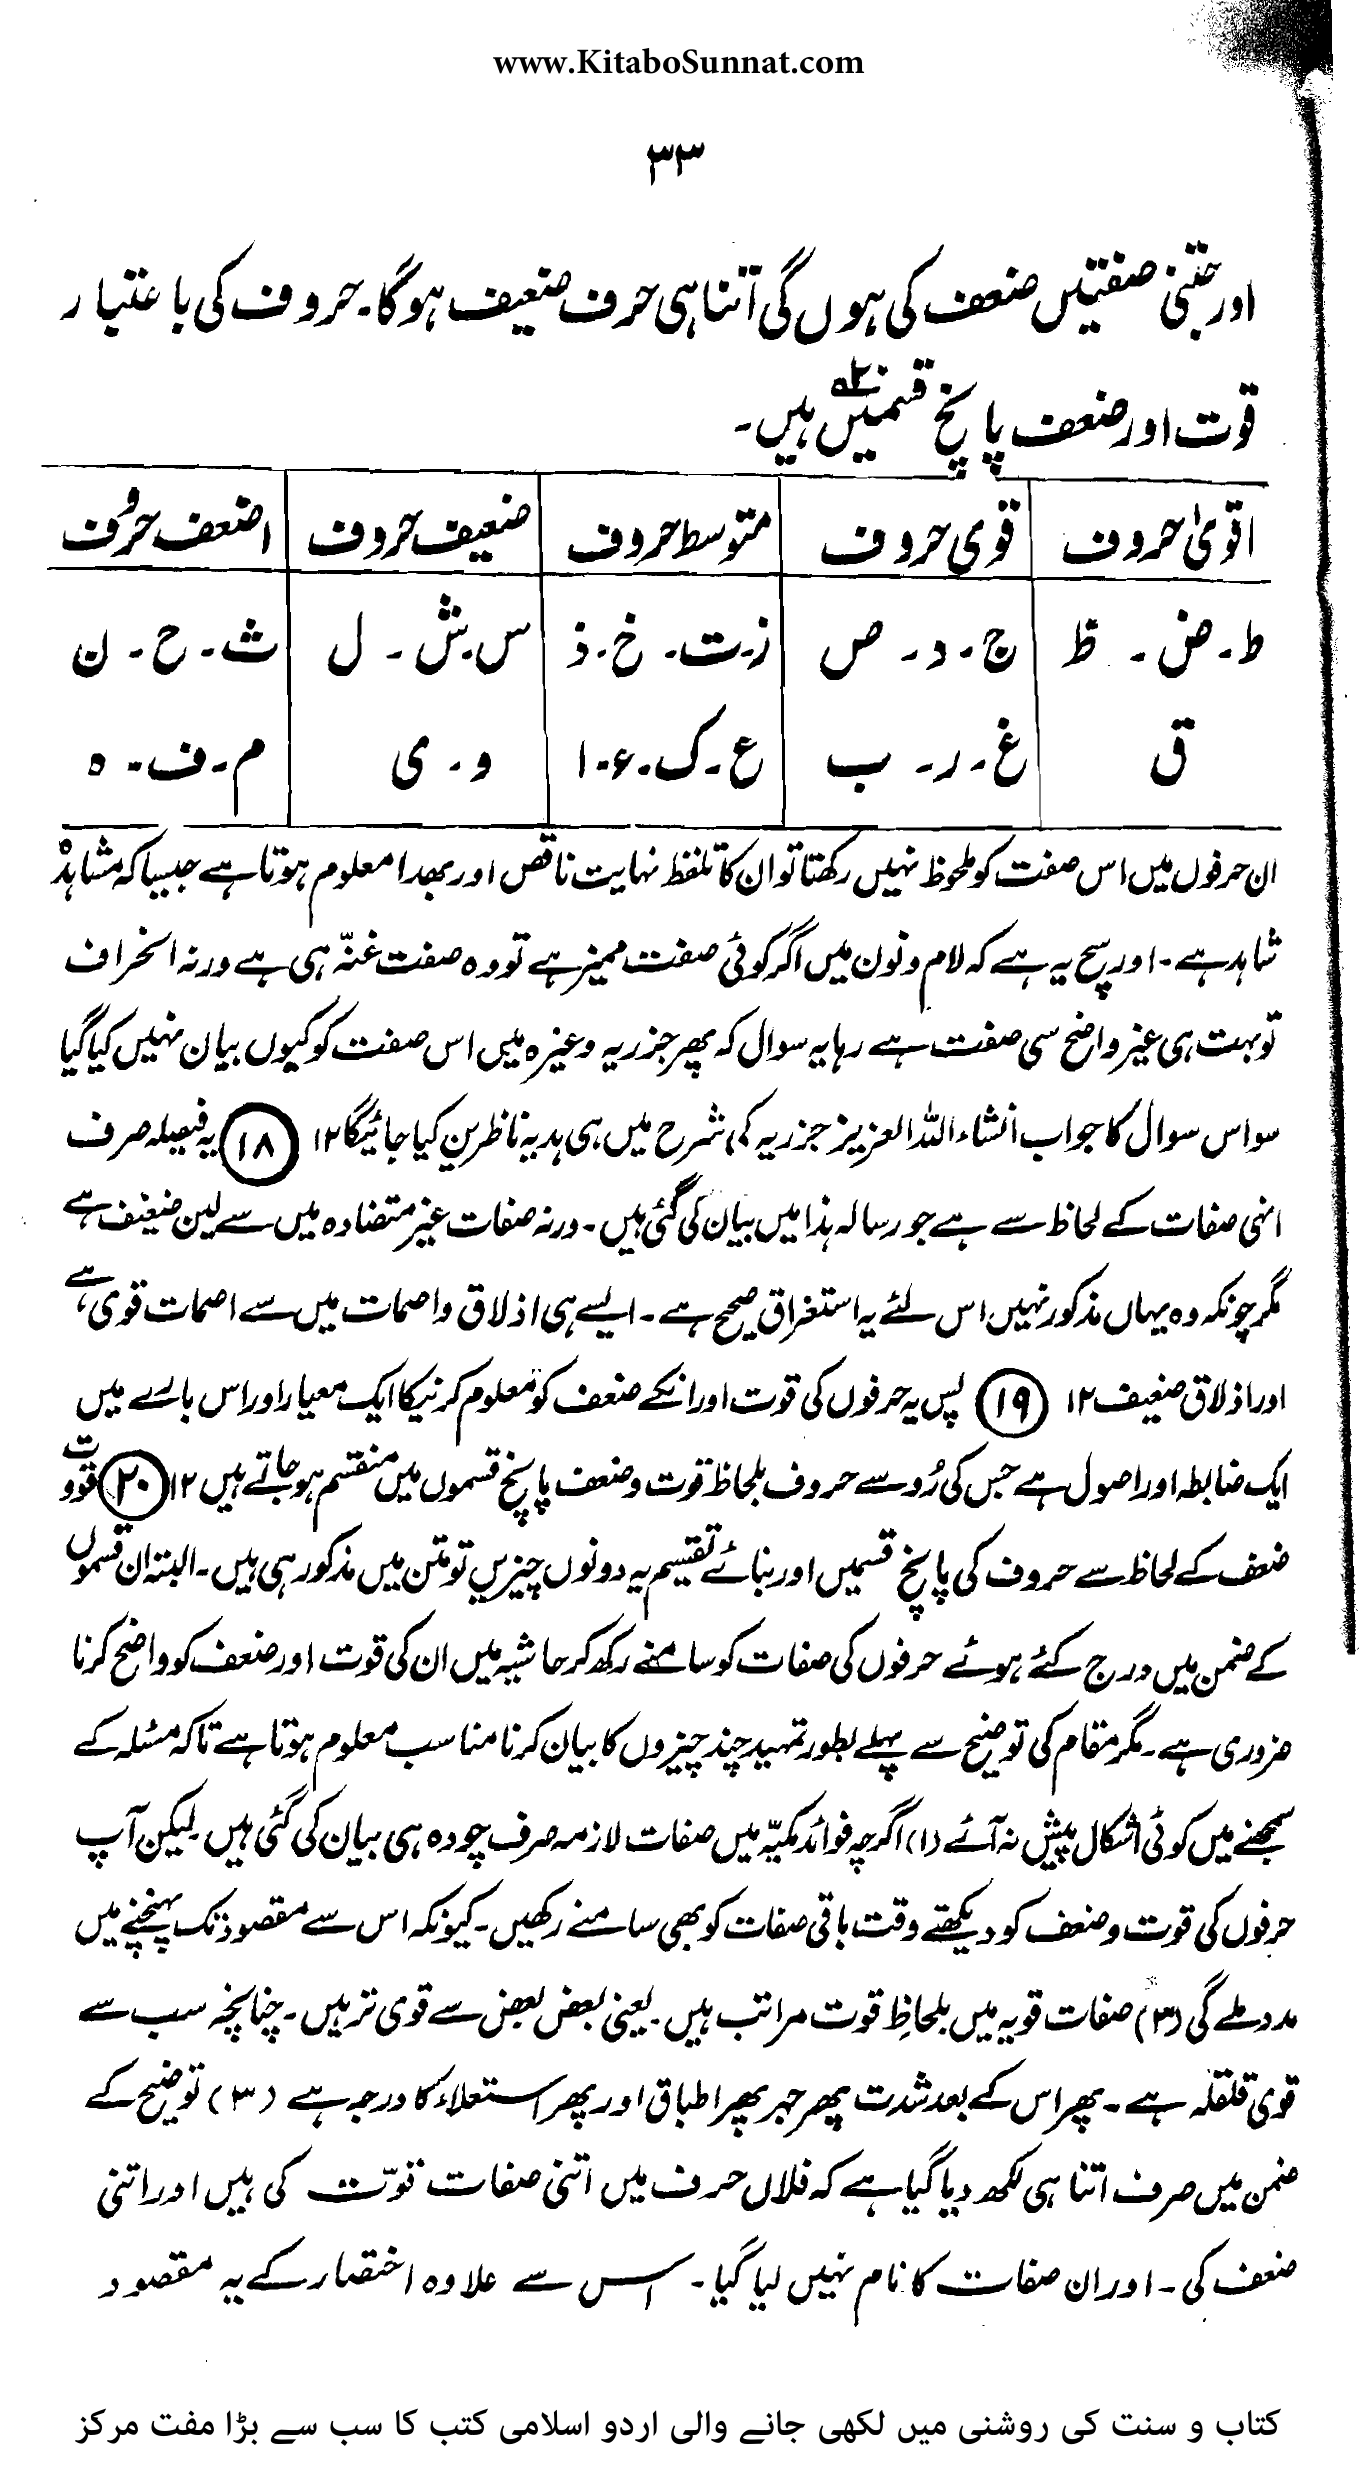 www.KitaboSunnat.com
۳۳
اور جتنی صفتیں ضعف کی ہوں گی اتنا ہی حرف ضعیف ہوگا۔ حروف کی باعتبار
قوت اور ضعف پانچ قسمیں ۲۰ ہیں۔
اقویٰ حروف | قوی حروف | متوسط حروف | ضعیف حروف | اضعف حروف
ط۔ ض۔ ظ | ج۔ د۔ ص | ز۔ ت۔ خ۔ ذ | س۔ ش۔ ل | ث۔ ح۔ ن
ق | غ۔ ر۔ ب | ع۔ ک۔ ء۔ ا | و۔ ی | م۔ ف۔ ہ
ان حرفوں میں اس صفت کو ملحوظ نہیں رکھتا تو ان کا تلفظ نہایت ناقص اور بھدا معلوم ہوتا ہے جیسا کہ مشاہدہ
شاہد ہے۔ اور سچ یہ ہے کہ لام و نون میں اگر کوئی صفت ممیز ہے تو وہ صفت غنّہ ہی ہے ورنہ انحراف
تو بہت ہی غیر واضح سی صفت ہے رہا یہ سوال کہ پھر جزریہ وغیرہ میں اس صفت کو کیوں بیان نہیں کیا گیا
سو اس سوال کا جواب انشاء اللہ العزیز جزریہ کی شرح میں ہی ہدیہ ناظرین کیا جائیگا ۱۲ (۱۸) یہ فیصلہ صرف
انہی صفات کے لحاظ سے ہے جو رسالہ ہذا میں بیان کی گئی ہیں۔ ورنہ صفات غیر متضادہ میں سے لین ضعیف ہے
مگر چونکہ وہ یہاں مذکور نہیں اس لئے یہ استغراق صحیح ہے۔ ایسے ہی اذلاق و اصمات میں سے اصمات قوی ہے،
اور اذلاق ضعیف ۱۲ (۱۹) پس یہ حرفوں کی قوت اور انکے ضعف کو معلوم کرنیکا ایک معیار اور اس بارے میں
ایک ضابطہ اور اصول ہے جس کی رُو سے حروف بلحاظ قوت و ضعف پانچ قسموں میں منقسم ہو جاتے ہیں ۱۲ (۲۰) قوت و
ضعف کے لحاظ سے حروف کی پانچ قسمیں اور بنائے تقسیم یہ دونوں چیزیں تو متن میں مذکور ہی ہیں۔ البتہ ان قسموں
کے ضمن میں درج کئے ہوئے حرفوں کی صفات کو سامنے رکھ کر حاشیہ میں ان کی قوت اور ضعف کو واضح کرنا
ضروری ہے۔ مگر مقام کی توضیح سے پہلے بطور تمہید چند چیزوں کا بیان کرنا مناسب معلوم ہوتا ہے تاکہ مسئلہ کے
سمجھنے میں کوئی اشکال پیش نہ آئے (۱) اگرچہ فوائد مکیّہ میں صفات لازمہ صرف چودہ ہی بیان کی گئی ہیں۔ لیکن آپ
حرفوں کی قوت و ضعف کو دیکھتے وقت باقی صفات کو بھی سامنے رکھیں۔ کیونکہ اس سے مقصود تک پہنچنے میں
مدد ملے گی (۳) صفات قویہ میں بلحاظِ قوت مراتب ہیں۔ یعنی بعض بعض سے قوی تر ہیں۔ چنانچہ سب سے
قوی قلقلہ ہے۔ پھر اس کے بعد شدت پھر جہر پھر اطباق اور پھر استعلاء کا درجہ ہے (۳) توضیح کے
ضمن میں صرف اتنا ہی لکھ دیا گیا ہے کہ فلاں حرف میں اتنی صفات قوّت کی ہیں اور اتنی
ضعف کی۔ اور ان صفات کا نام نہیں لیا گیا۔ اس سے علاوہ اختصار کے یہ مقصود
کتاب و سنت کی روشنی میں لکھی جانے والی اردو اسلامی کتب کا سب سے بڑا مفت مرکز